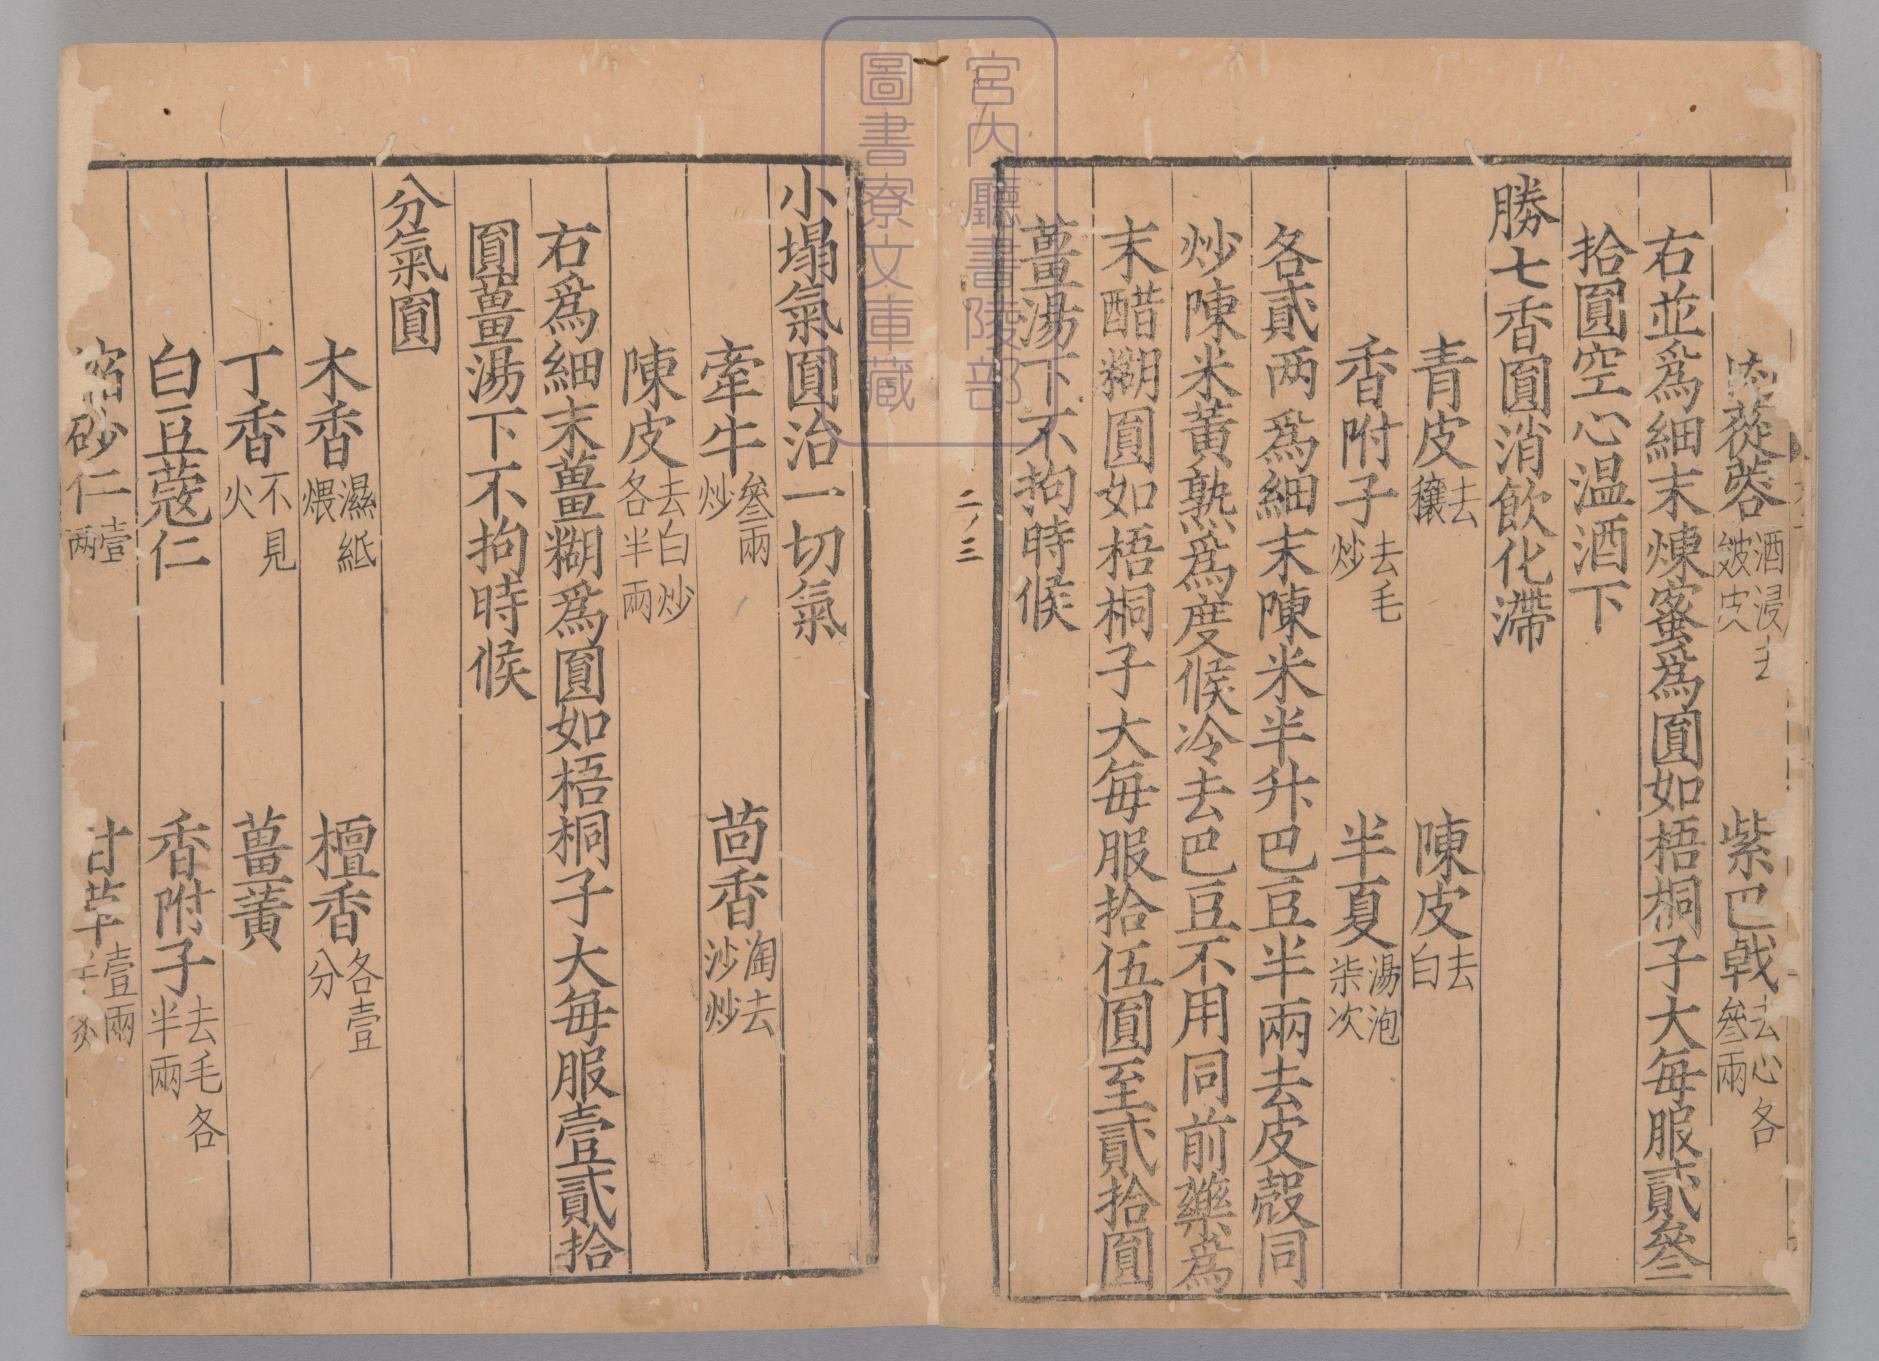 肉蓯蓉酒浸皴皮 紫巴戟去心各叄兩
右並爲細末煉蜜爲圓如梧桐子大每服貳叄
拾圓空心温酒下
勝七香圓消飲化滯
青皮去穰 陳皮去白
香附子去毛炒 半夏湯泡柒次
各貳两爲細末陳米半升巴豆半兩去皮殼同
炒陳米黃熟爲度候冷去巴豆不用同前藥爲
末醋糊圓如梧桐子大每服拾伍圓至貳拾圓
薑湯下不拘時候
二ノ三
小塌氣圓治一切氣
牽牛叄兩炒 茴香淘去沙炒
陳皮去白炒各半兩
右爲細末薑糊爲圓如梧桐子大每服壹貳拾
圓薑湯下不拘時候
分氣圓
木香濕紙煨 檀香各壹分
丁香不見火 薑黃
白豆蔻仁 香附子去毛各半兩
縮砂仁壹两 甘草壹兩
宮内廳書陵部
圖書寮文庫藏